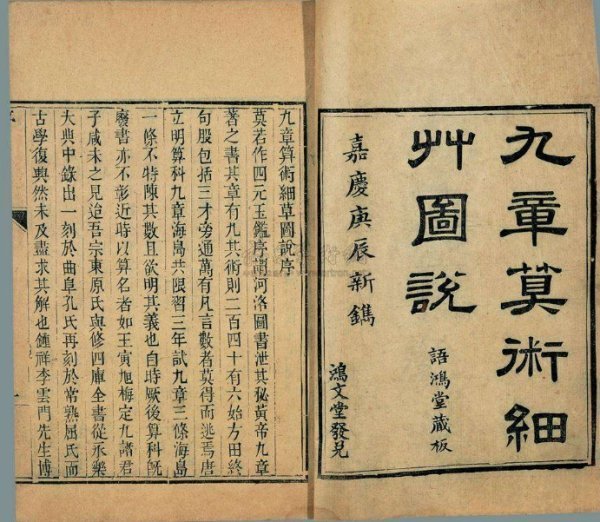 九章算術細
艸圖説
嘉慶庚辰新鐫
語鴻堂藏板
鴻文堂發兑
九章算術細草圖說序
莫若作四元玉鑑序謂河洛圖書泄其秘黄帝九章
著之書其章有九其術則二百四十有六始方田終
句股包括三才旁通萬有凡言數者莫得而逃焉唐
立明算科九章海島共限習三年試九章三條海島
一條不特陳其數且欲明其義也自時厥後算科旣
廢書亦不彰近時以算名者如王寅旭梅定九諸君
子咸未之見迨吾宗東原氏與修四庫全書從永樂
大典中錄出一刻於曲阜孔氏再刻於常熟屈氏而
古學復興然未及盡求其解也鍾祥李雲門先生博